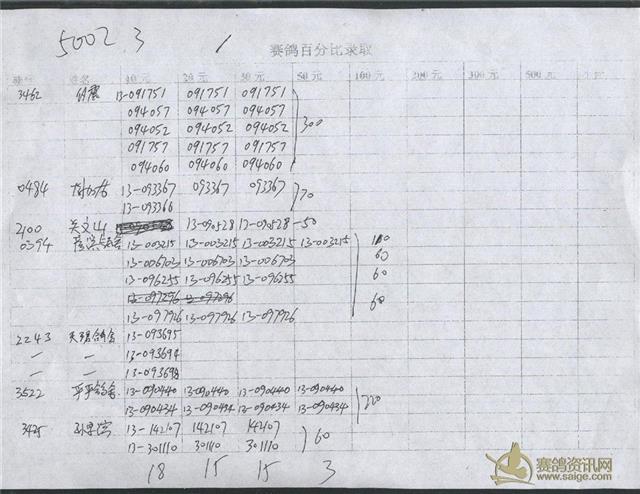 5002.3 1
赛鸽百分比录取
姓名 10元 20元 30元 50元 100元 200元 300元 500元
3462 13-091751 091751 091751
094057 094057 094057
094052 094052 094052 300
091757 091757 091757
094060 094060 094060
0484 13-093367 093367 093367 70
13-093366
2100 关文山 13-090528 13-090528-50
0394 13-003215 13-003215 13-003215 13-003215 100
13-006703 13-006703 13-006703 60
13-096255 13-096255 13-096255 60
13-097296 13-097296
13-097926 13-097926 13-097926 60
2243 13-093695
— — 13-093694
— — 13-093698
3522 平平鸽舍 13-090440 13-090440 13-090440 13-090440
13-090434 13-090434 13-090434 13-090434 220
3425 13-142107 142107 142107
13-301110 301110 60
18 15 15 3
赛鸽资讯网
www.saige.com